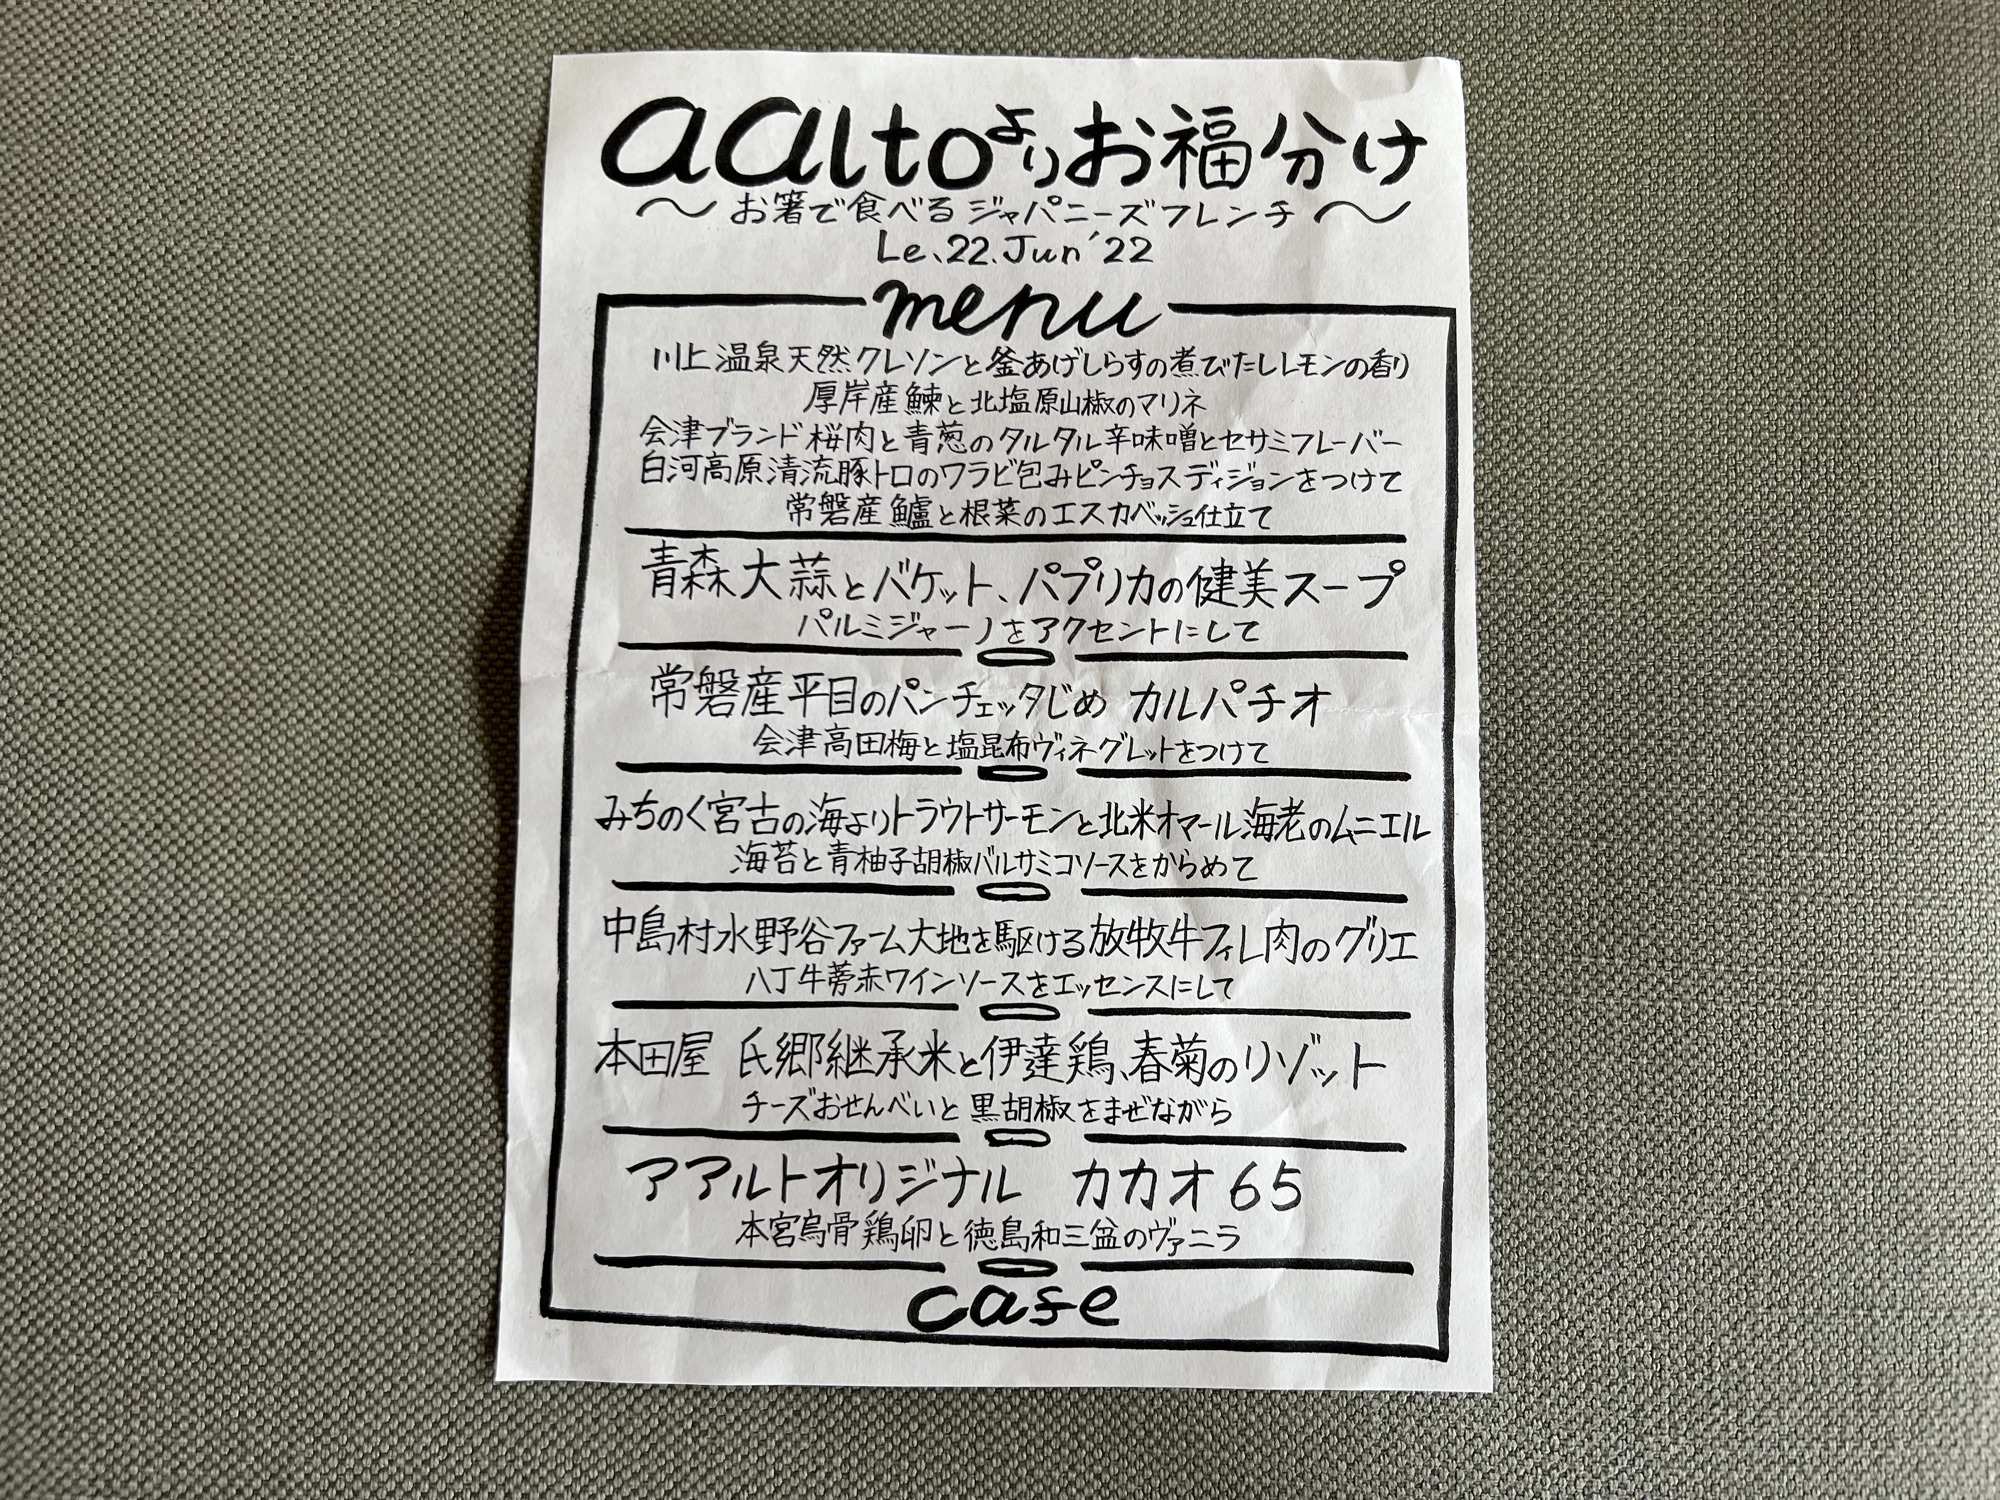 aaltoよりお福分け
〜お箸で食べるジャパニーズフレンチ〜
Le.22.Jun'22
menu
川上温泉天然クレソンと釜あげしらすの煮びたしレモンの香り
厚岸産鰊と北塩原山椒のマリネ
会津ブランド桜肉と青葱のタルタル辛味噌とセサミフレーバー
白河高原清流豚トロのワラビ包みピンチョスディジョンをつけて
常磐産鱸と根菜のエスカベッシュ仕立て
青森大蒜とバケット、パプリカの健美スープ
パルミジャーノをアクセントにして
常磐産平目のパンチェッタじめ カルパチオ
会津高田梅と塩昆布ヴィネグレットをつけて
みちのく宮古の海よりトラウトサーモンと北米オマール海老のムニエル
海苔と青柚子胡椒バルサミコソースをからめて
中島村水野谷ファーム大地を駆ける放牧牛フィレ肉のグリエ
八丁牛蒡赤ワインソースをエッセンスにして
本田屋 氏郷継承米と伊達鶏、春菊のリゾット
チーズおせんべいと黒胡椒をまぜながら
アアルトオリジナル カカオ65
本宮烏骨鶏卵と徳島和三盆のヴァニラ
cafe